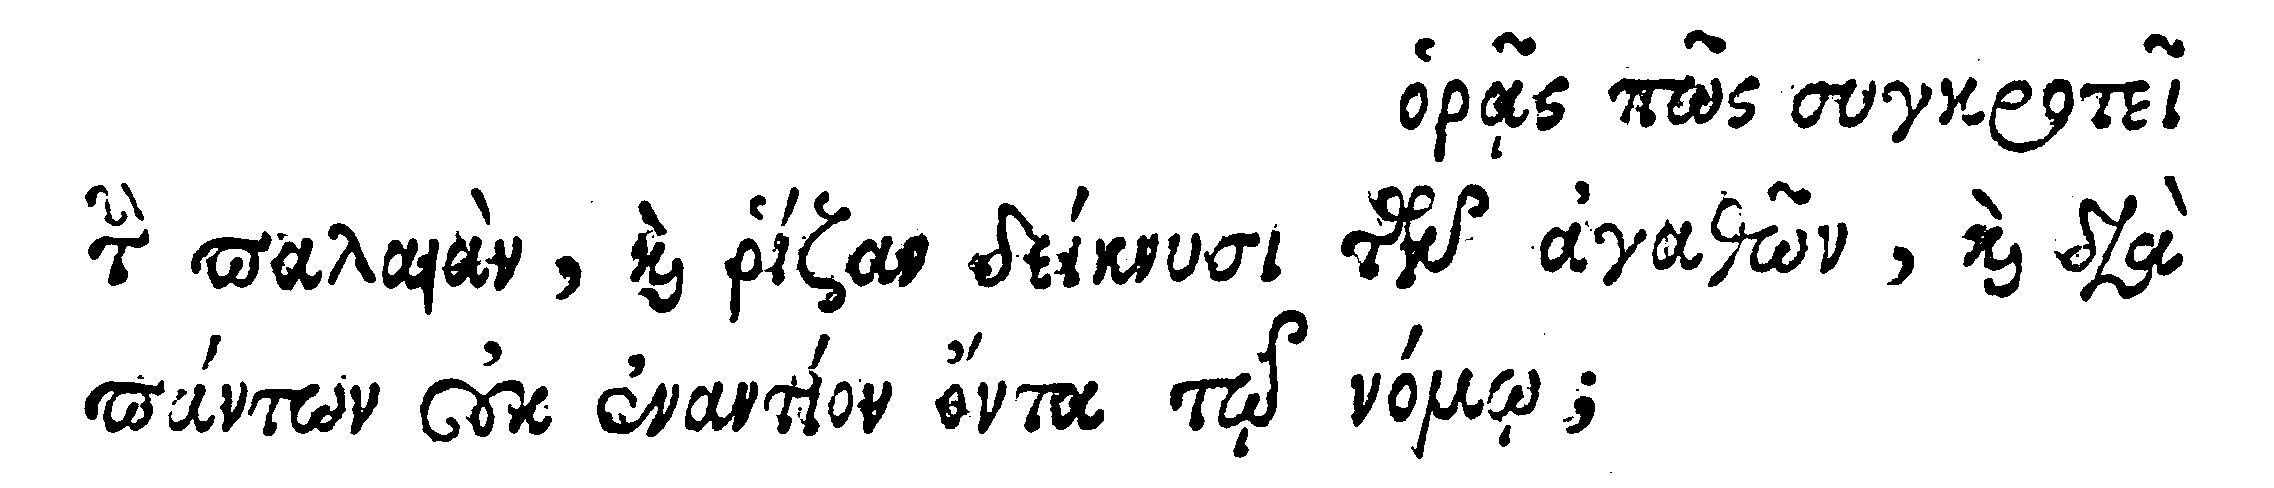 ὁρᾷς πῶς συγκροτεῖ
τὴν παλαιὰν, καὶ ῥίζαν δείκνυσι τῶν ἀγαθῶν, καὶ διὰ
πάντων οὐκ ἐναντίον ὄντα τῷ νόμῳ;